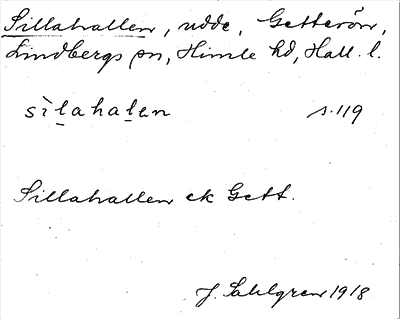 Sillahallen, udde, Getterön,
Lindbergs sn, Himle hd, Hall. l.
sìlahalen s. 119
Sillahallen ek Gett.
J. Sahlgren 1918